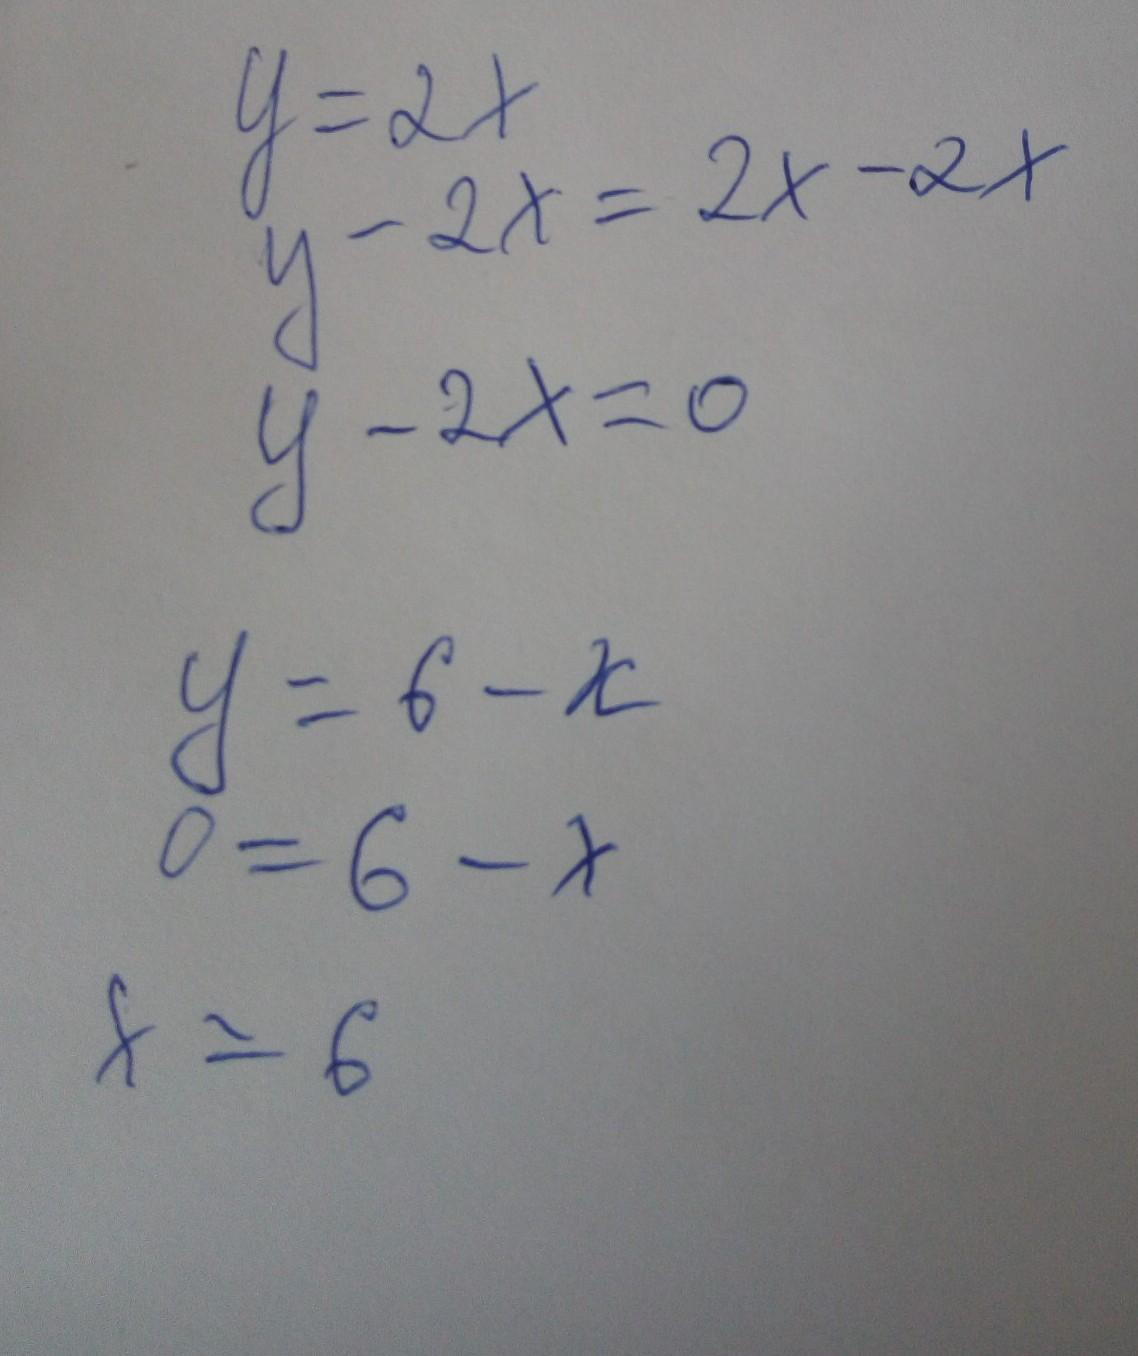 y = 2x
y - 2x = 2x - 2x
y - 2x = 0
y = 6 - x
0 = 6 - x
x = 6